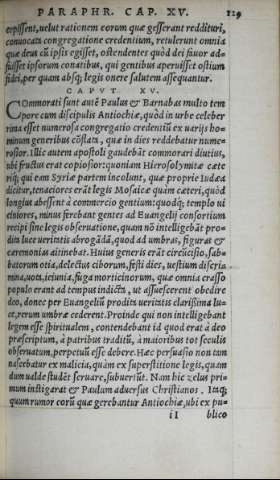 PARAPHR. CAP. XV. 129
epissent, uelut rationem eorum quæ gesserant reddituri,
conuocata congregatione credentium, retulerunt omnia
quæ deus cū ipsis egisset, ostendentes quòd dei fauor ad-
fuisset ipsorum conatibus, qui gentibus aperuisset ostium
fidei, per quam absq; legis onere salutem assequantur.
CAPVT XV.
COmmorati sunt autē Paulus & Barnabas multo tem
pore cum discipulis Antiochiæ, quòd in urbe celeber
rima esset numerosa congregatio credentiū ex uarijs ho-
minum generibus cōflata, quæ in dies reddebatur nume-
rosior. Illic autem apostoli gaudebāt commorari diutius,
ubi fructus erat copiosior: quoniam Hierosolymitæ cæte
riq; qui eam Syriæ partem incolunt, quæ propriè Iudæa
dicitur, tenaciores erāt legis Mosaicæ quàm cæteri, quòd
longius abessent à commercio gentium: quodq; templo ui
ciniores, minus ferebant gentes ad Euangelij consortium
recipi sine legis obseruatione, quam nō intelligebāt pro-
dita luce ueritatis abrogādā, quod ad umbras, figuras &
cæremonias attinebat. Huius generis erāt circūcisio, sab-
batorum ocia, delectus ciborum, festi dies, uestium discri-
mina, uota, ieiunia, fuga morticinorum, quæ omnia crasso
populo erant ad tempus indicta, ut assuesceret obedire
deo, donec per Euangeliū prodita ueritatis clarissima lu-
ce, rerum umbræ cederent. Proinde qui non intelligebant
legem esse spiritualem, contendebant id quod erat à deo
præscriptum, à patribus traditū, à maioribus tot seculis
obseruatum, perpetuū esse debere. Hæc persuasio non tam
nascebatur ex malicia, quàm ex superstitione legis, quam
dum ualde studēt seruare, subuertūt. Nam hic zelus pri-
mum instigarat & Paulum aduersus Christianos. Itaq;
quum rumor eorū quæ gerebantur Antiochiæ, ubi ex pu-
blico